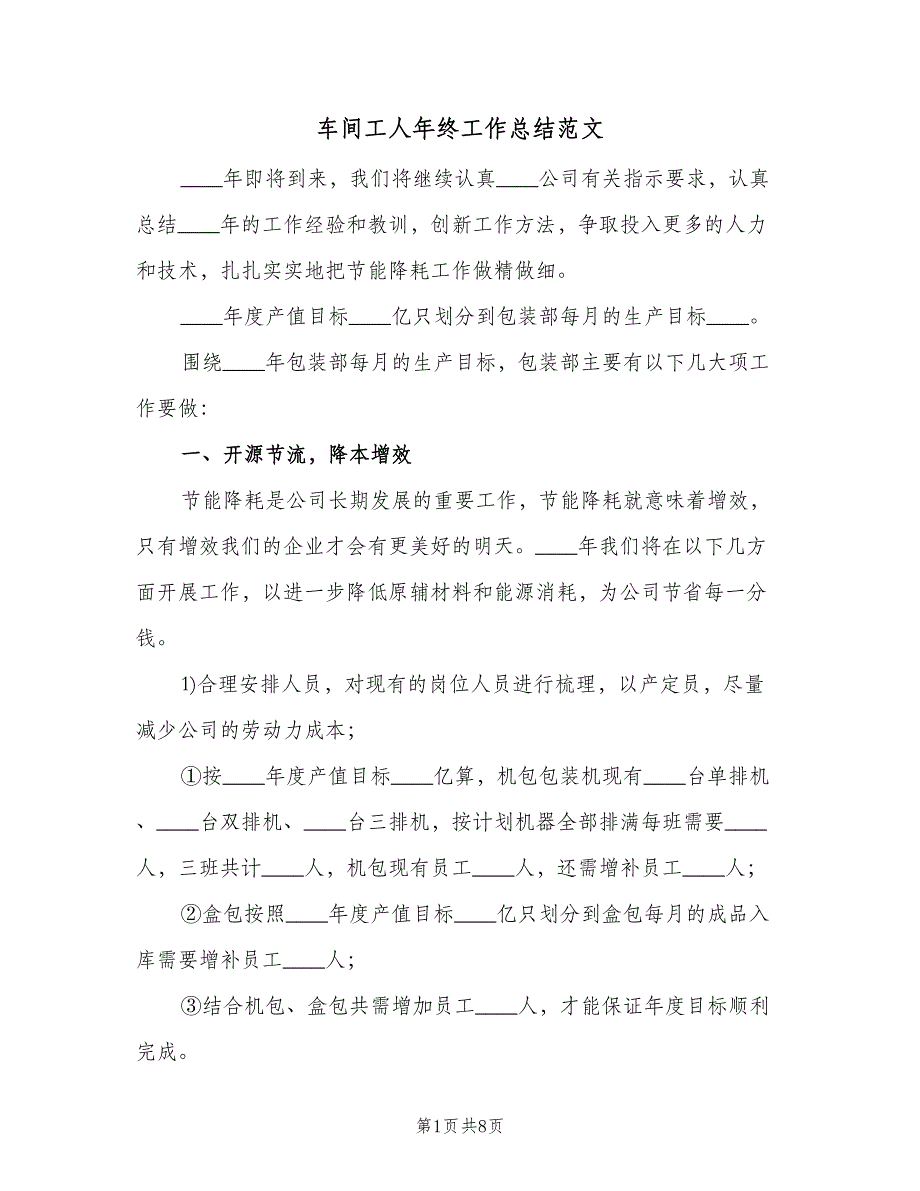 车间工人年终工作总结范文
____年即将到来，我们将继续认真____公司有关指示要求，认真
总结____年的工作经验和教训，创新工作方法，争取投入更多的人力
和技术，扎扎实实地把节能降耗工作做精做细。
____年度产值目标____亿只划分到包装部每月的生产目标____。
围绕____年包装部每月的生产目标，包装部主要有以下几大项工
作要做：
一、开源节流，降本增效
节能降耗是公司长期发展的重要工作，节能降耗就意味着增效，
只有增效我们的企业才会有更美好的明天。____年我们将在以下几方
面开展工作，以进一步降低原辅材料和能源消耗，为公司节省每一分
钱。
1)合理安排人员，对现有的岗位人员进行梳理，以产定员，尽量
减少公司的劳动力成本；
①按____年度产值目标____亿算，机包包装机现有____台单排机
、____台双排机、____台三排机，按计划机器全部排满每班需要____
人，三班共计____人，机包现有员工____人，还需增补员工____人；
②盒包按照____年度产值目标____亿只划分到盒包每月的成品入
库需要增补员工____人；
③结合机包、盒包共需增加员工____人，才能保证年度目标顺利
完成。
第1页共8页